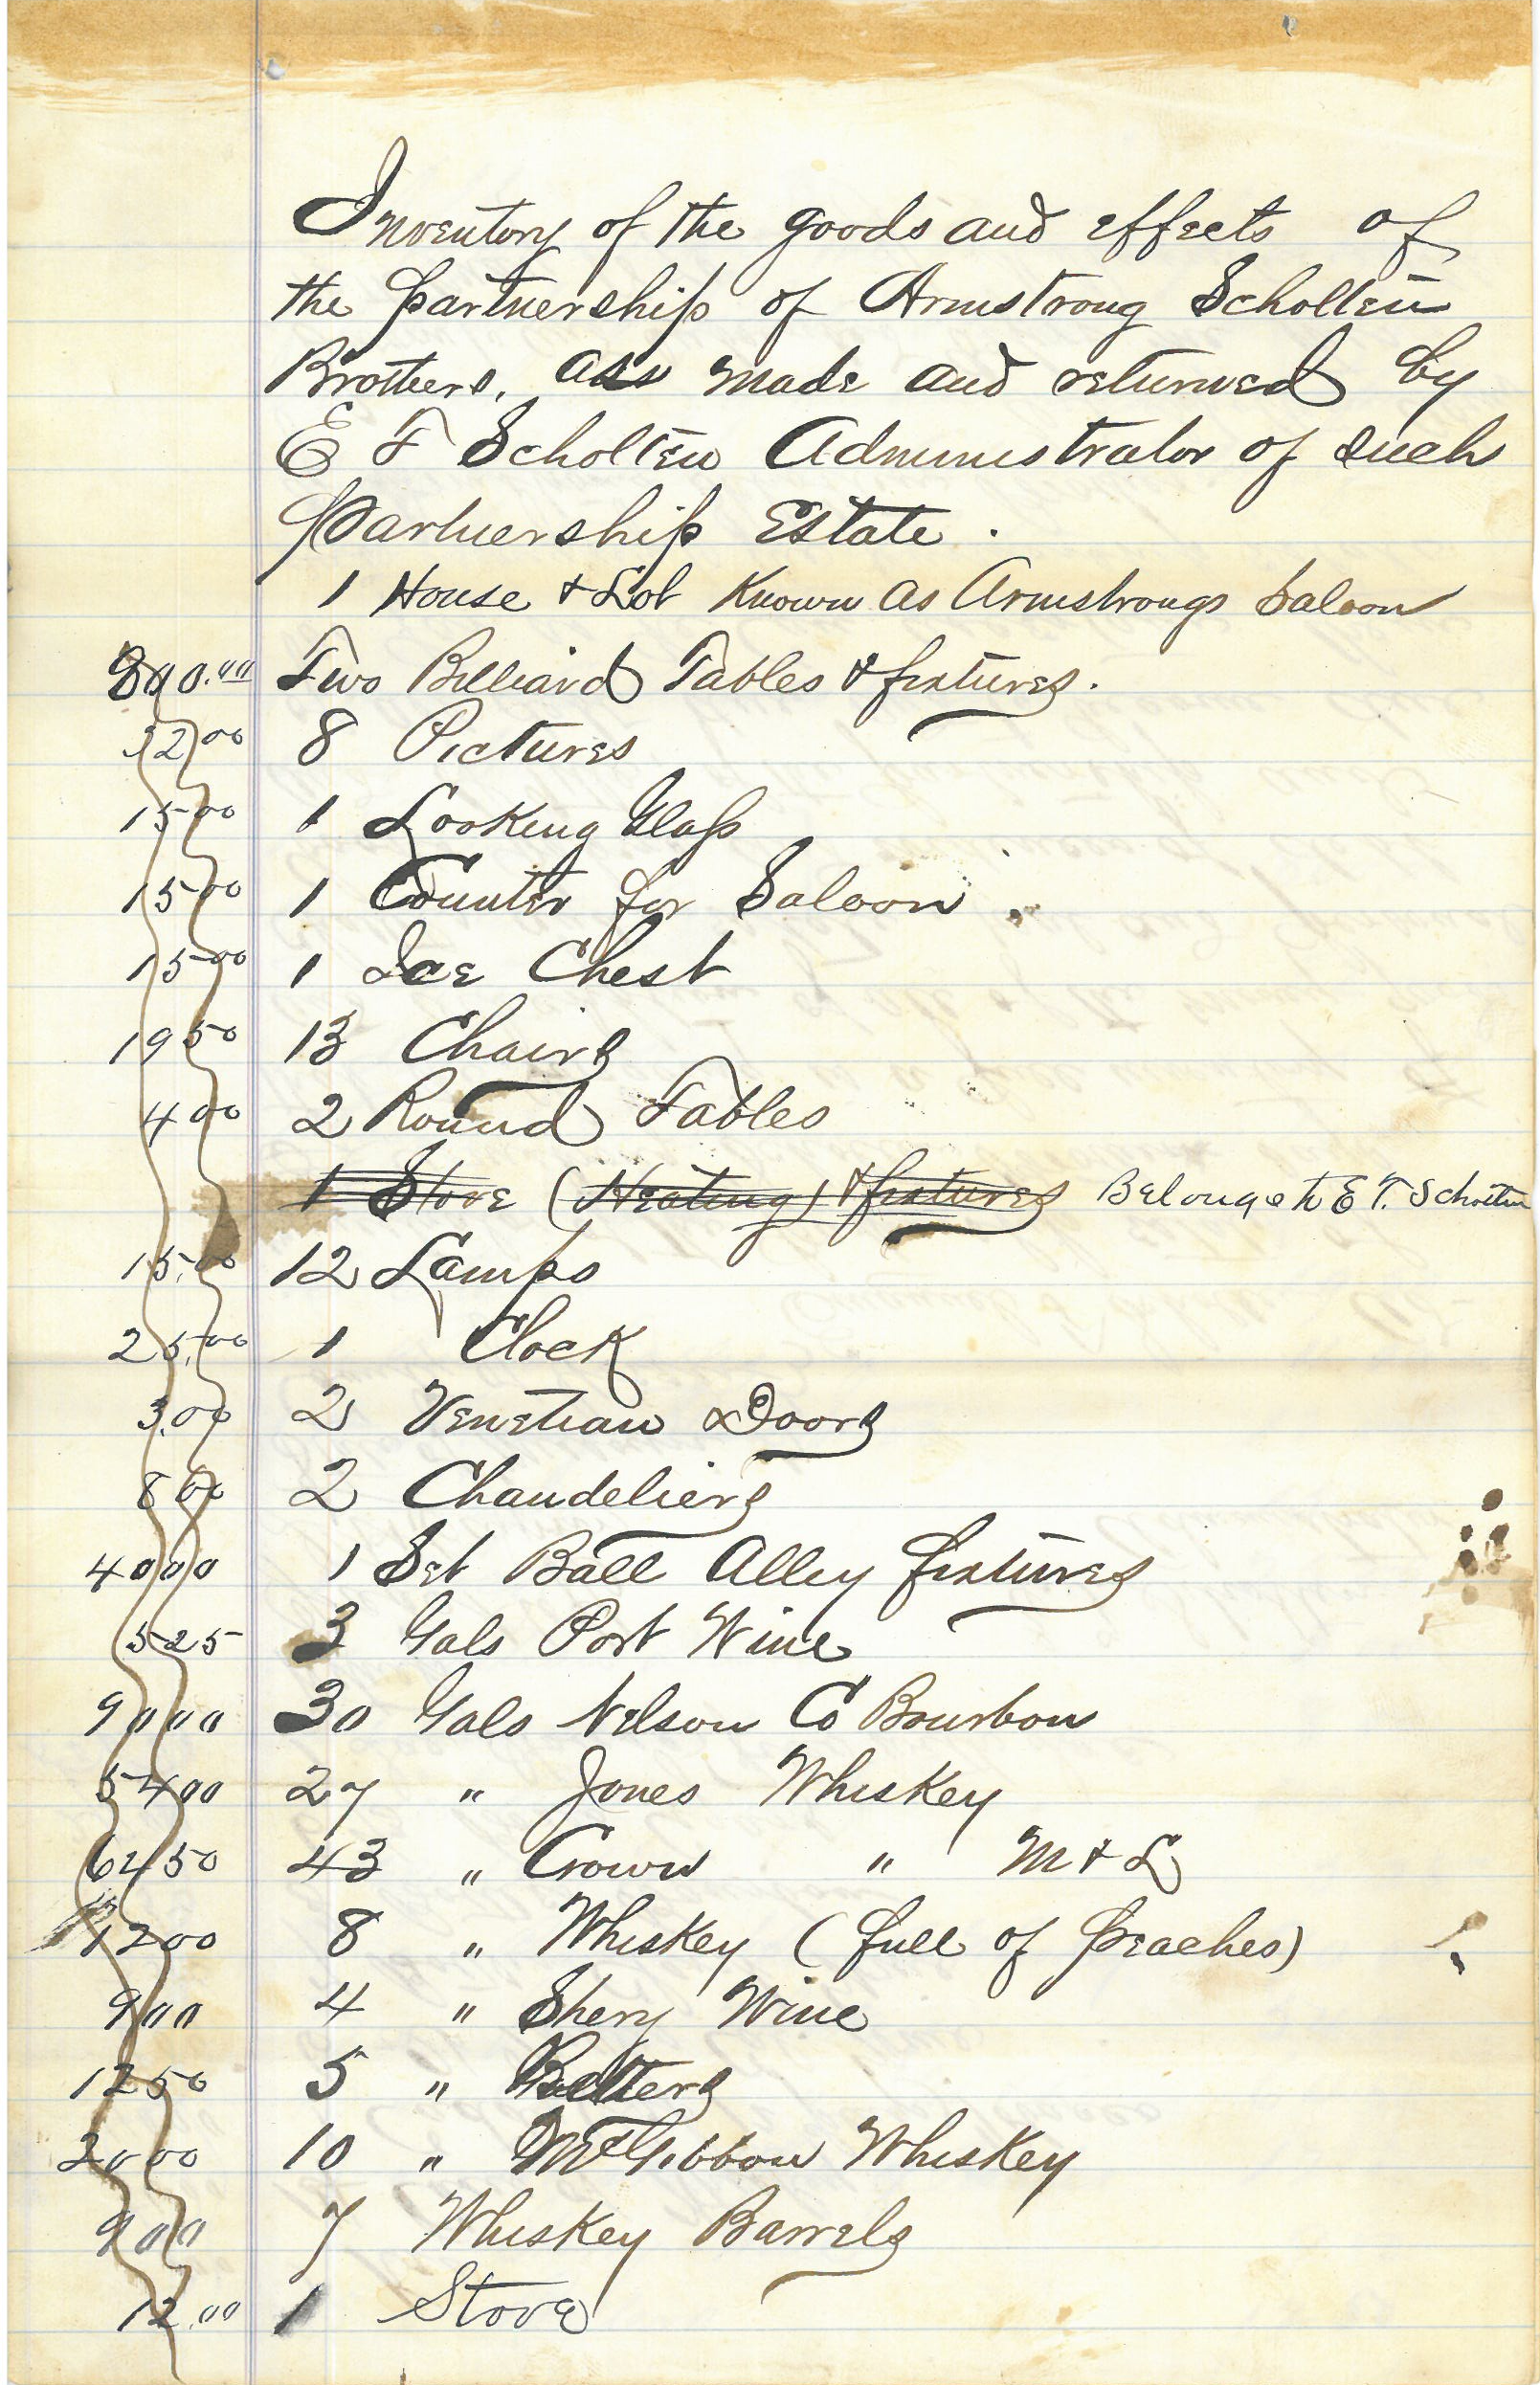 Inventory of the goods and effects of
the partnership of Armstrong Scholten
Brothers. as made and returned by
E T Scholten Administrator of such
Partnership Estate.
1 House & Lot Known as Armstrongs Saloon
800.00 Two Billiard Tables & fixtures.
32 00 8 Pictures
15 00 1 Looking Glass
15 00 1 Counter for Saloon.
15 00 1 Ice Chest
19 50 13 Chairs
4 00 2 Round Tables
1 Stove (Heating) & fixtures Belongs to E T. Scholten
15.00 12 Lamps
25.00 1 Clock
3.00 2 Venetian Doors
8 00 2 Chandeliers
40 00 1 Set Ball Alley fixtures
5 25 3 Gals Port Wine
90 00 30 Gals Nelson Co Bourbon
54 00 27 " Jones Whiskey
64 50 43 " Crown " M & L
12 00 8 " Whiskey (full of peaches)
9 00 4 " Shery Wine
12 50 5 " Bitters
20 00 10 " McGibbon Whiskey
9 00 7 Whiskey Barrels
12.00 1 Stove